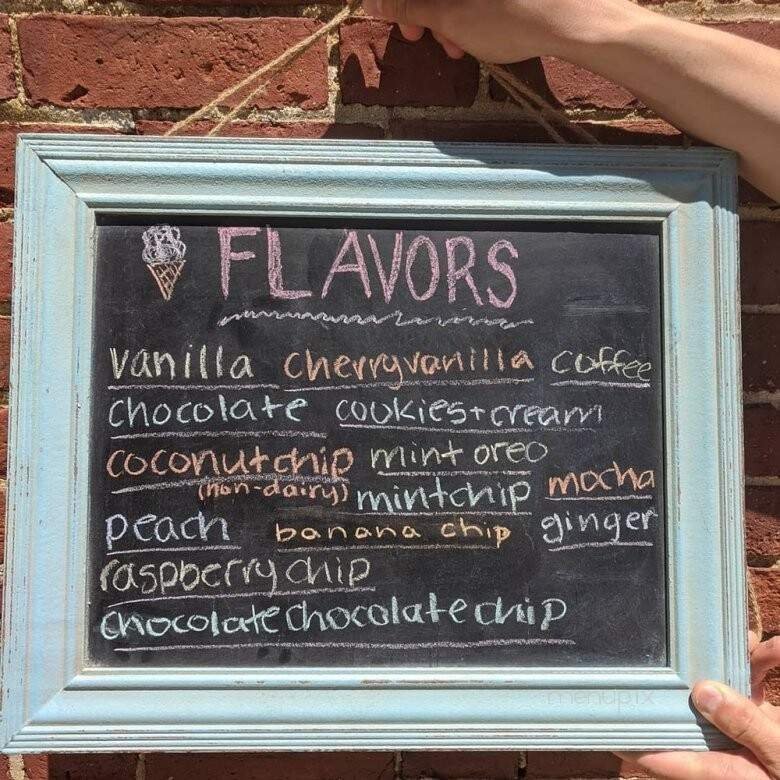 FLAVORS
vanilla cherryvanilla coffee
chocolate cookies+cream
coconutchip mint oreo
(non-dairy) mintchip mocha
peach banana chip ginger
raspberry chip
chocolate chocolate chip
menupix